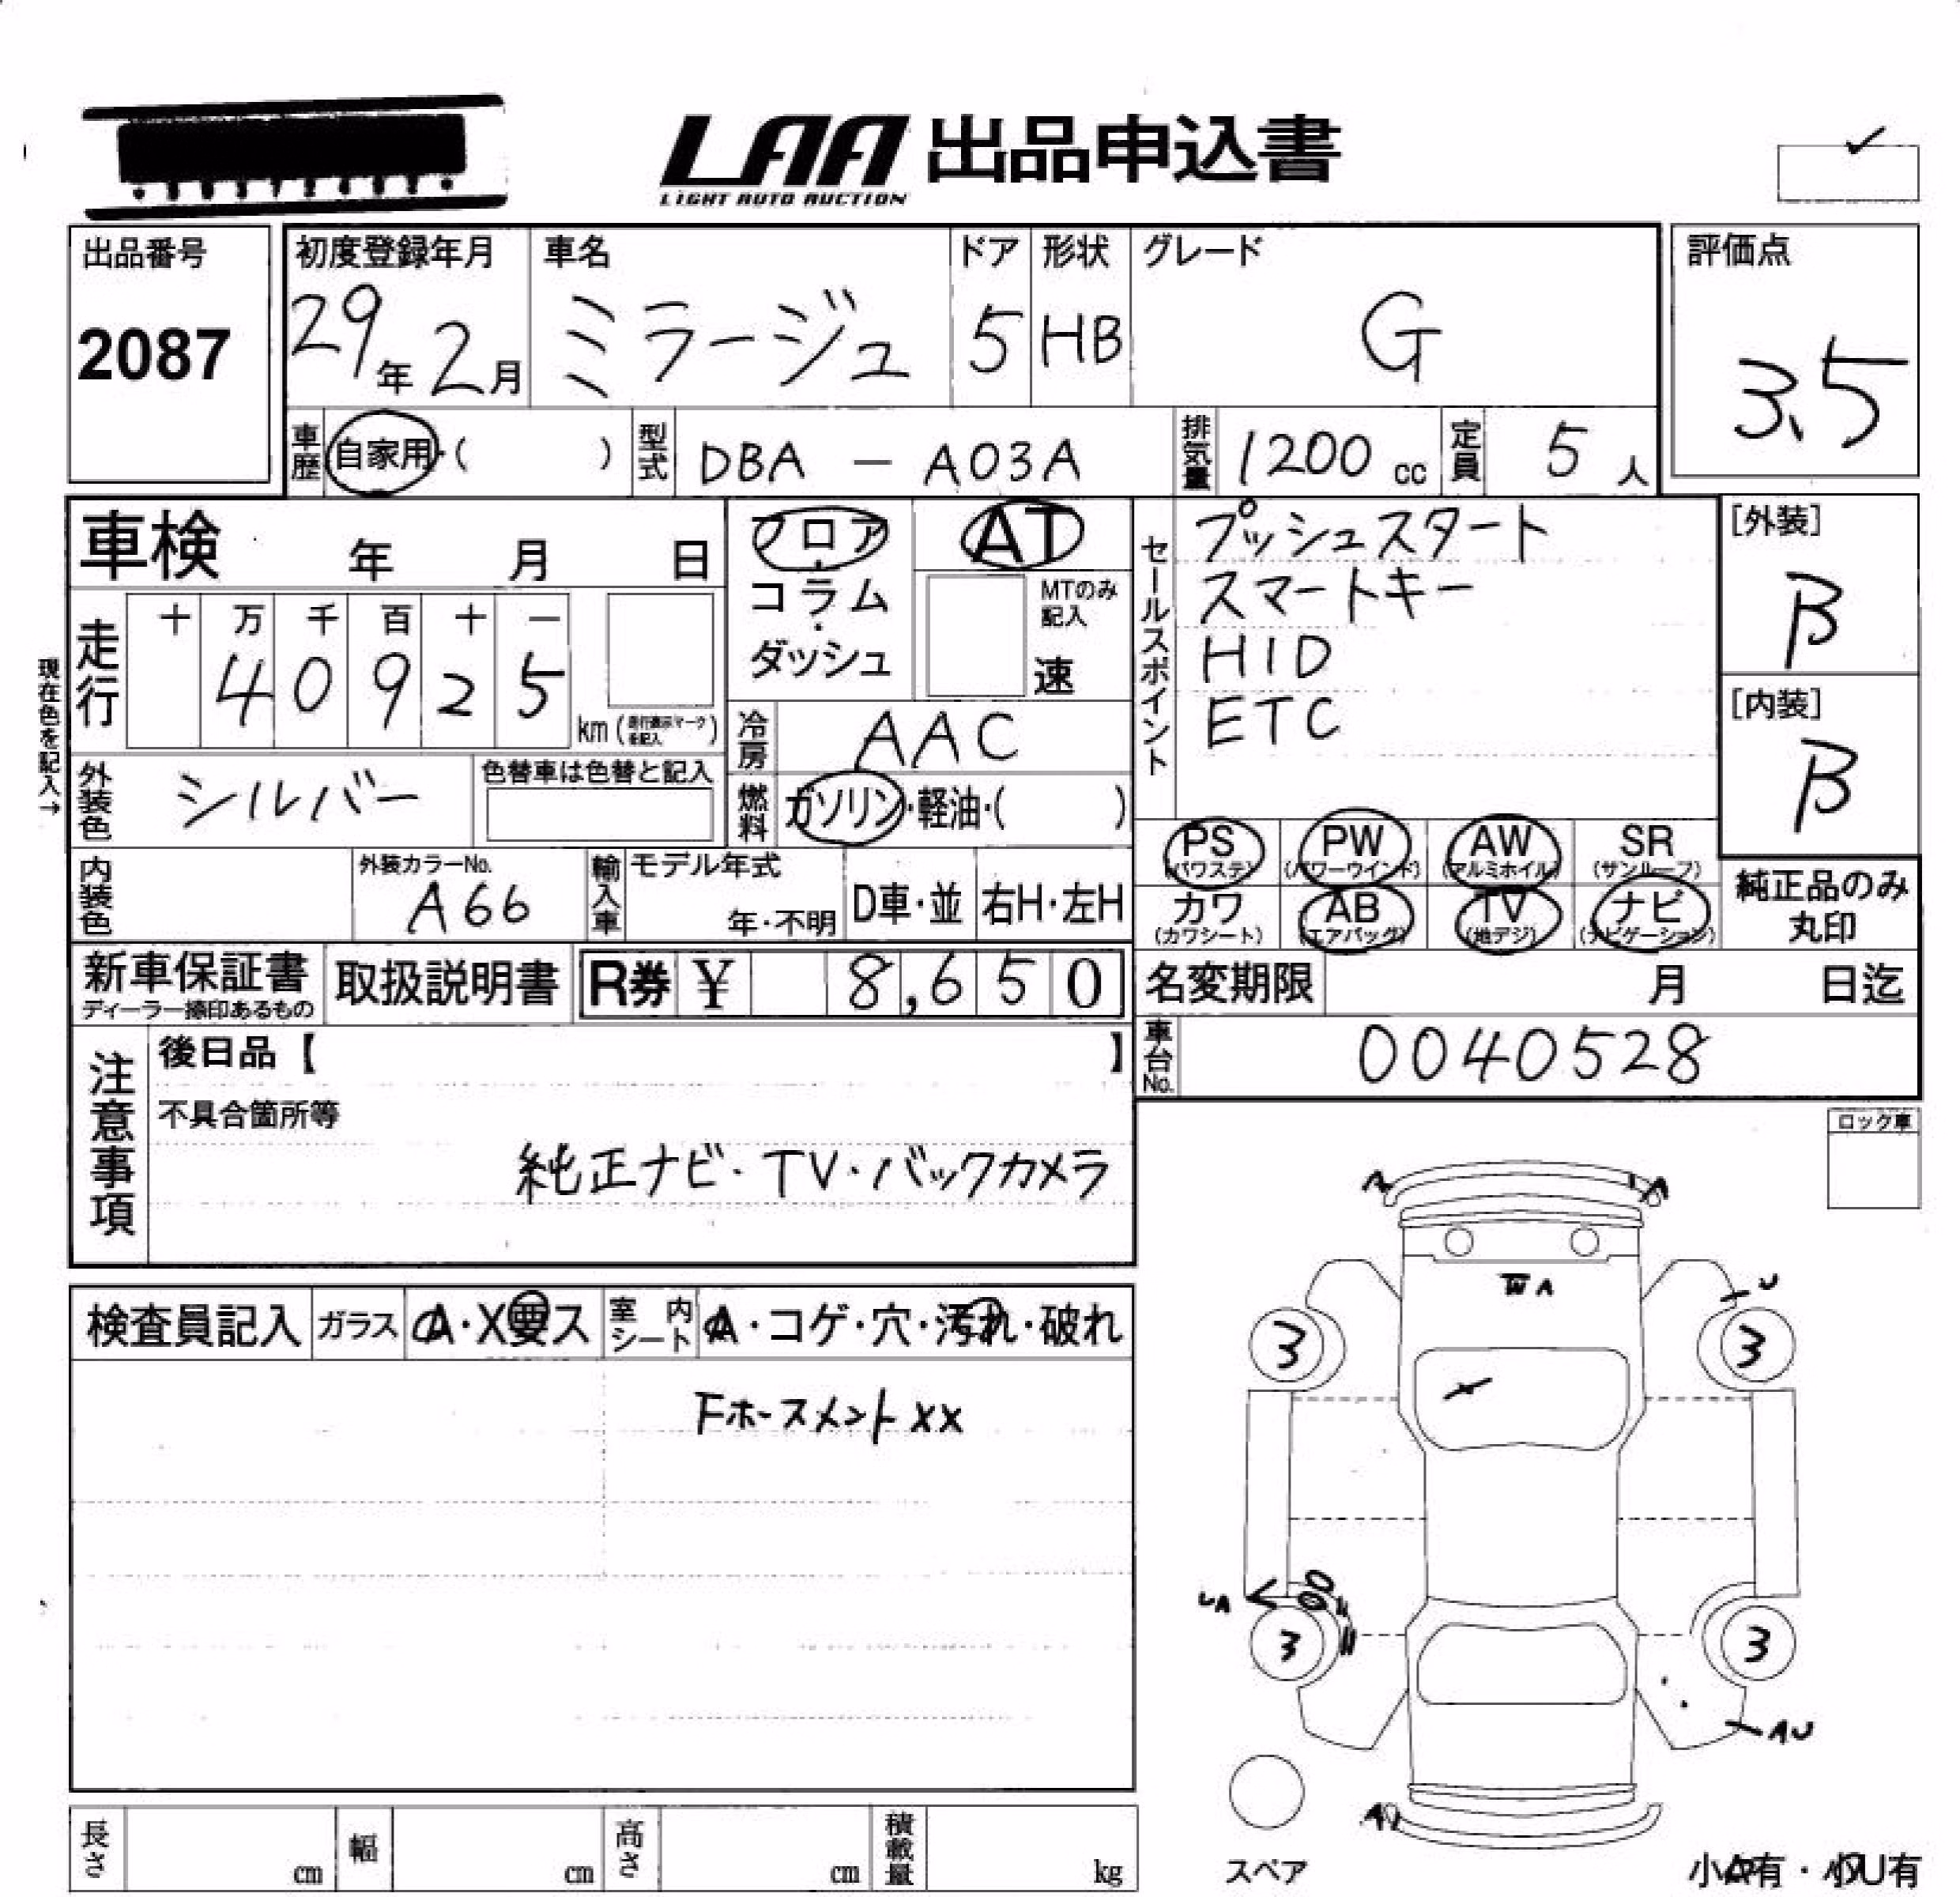 LAA 出品申込書
LIGHT AUTO AUCTION
出品番号
2087
初度登録年月
29年 2月
車名
ミラージュ
ドア
5
形状
HB
グレード
G
評価点
3.5
車歴 自家用・( )
型式 DBA - A03A
排気量 1200 cc
定員 5 人
車検 年 月 日
フロア・コラム・ダッシュ
AT
MTのみ記入
速
セールスポイント
プッシュスタート
スマートキー
HID
ETC
[外装]
B
[内装]
B
現在色を記入→
走行
十 万 千 百 十 一
4 0 9 2 5
km (走行表示マークを記入)
冷房 AAC
外装色 シルバー
色替車は色替と記入
燃料 ガソリン・軽油・( )
内装色
外装カラーNo.
A66
輸入車
モデル年式
年・不明
D車・並
右H・左H
PS (パワステ)
PW (パワーウインド)
AW (アルミホイル)
SR (サンルーフ)
カワ (カワシート)
AB (エアバッグ)
TV (地デジ)
ナビ (ナビゲーション)
純正品のみ
丸印
新車保証書
ディーラー捺印あるもの
取扱説明書
R券 ¥ 8,650
名変期限 月 日迄
車台No. 0040528
注意事項
後日品【 】
不具合箇所等
純正ナビ・TV・バックカメラ
ロック車
検査員記入
ガラス A・X要ス
室内シート A・コゲ・穴・汚れ・破れ
Fホースメントxx
A
A
W A
U
3
3
3
3
AU
スペア
長さ cm
幅 cm
高さ cm
積載量 kg
小A有・小U有